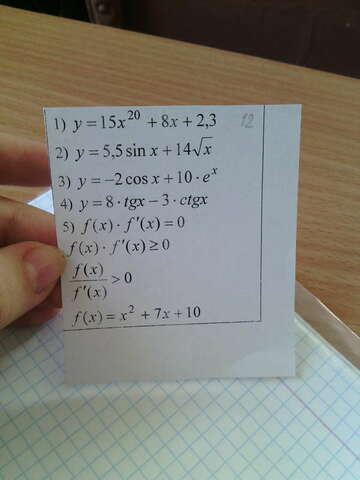 1) y = 15x²⁰ + 8x + 2,3 12
2) y = 5,5 sin x + 14√x
3) y = −2 cos x + 10 · eˣ
4) y = 8 · tgx − 3 · ctgx
5) f(x) · f′(x) = 0
f(x) · f′(x) ≥ 0
f(x)/f′(x) > 0
f(x) = x² + 7x + 10